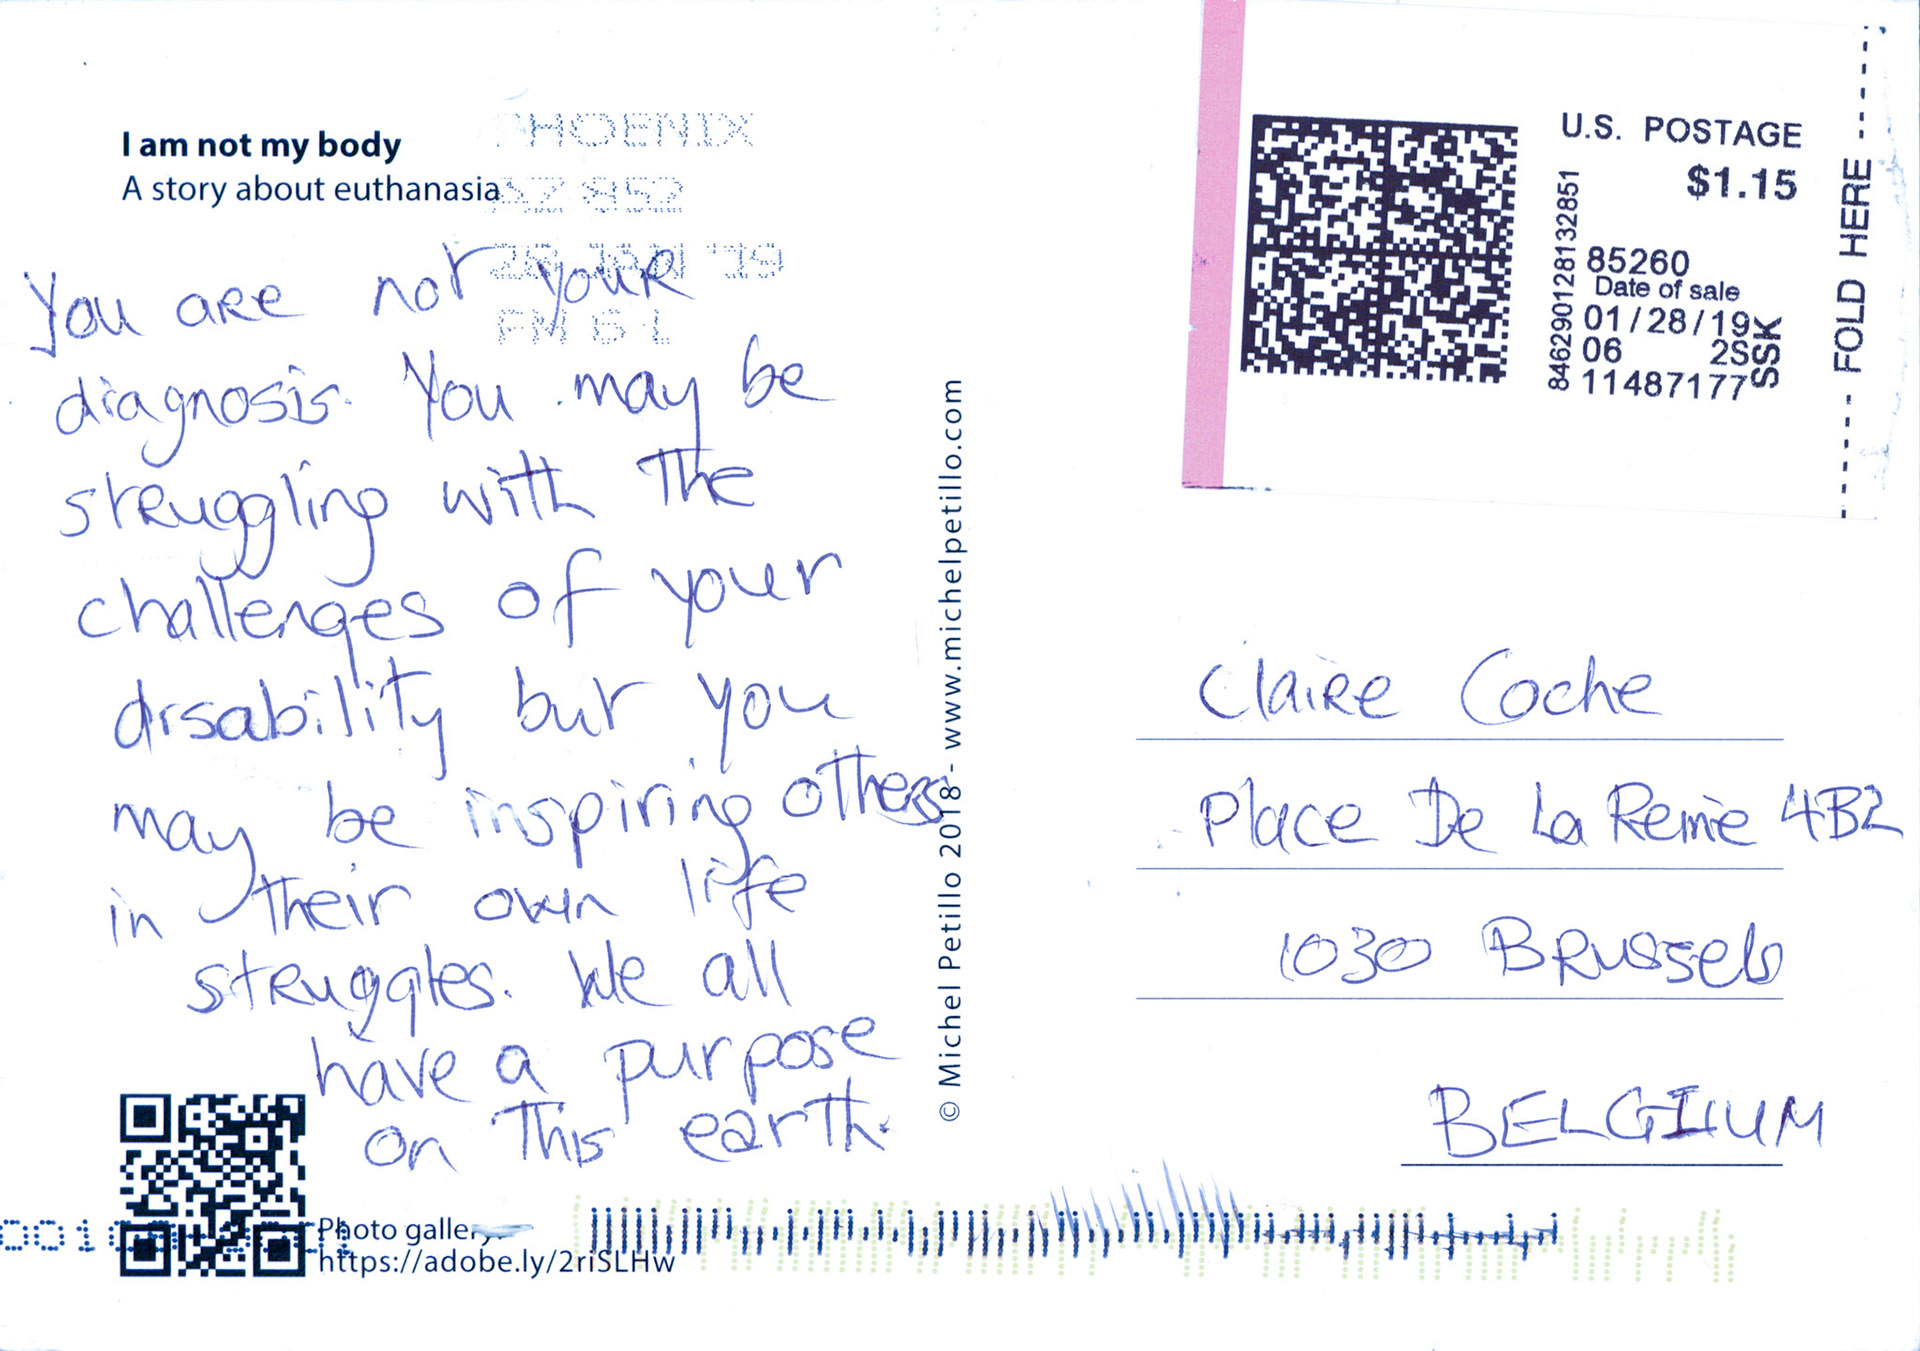 I am not my body
A story about euthanasia
PHOENIX
AZ 852
28 JAN '19
PM 5 L
You are not your
diagnosis. You may be
struggling with the
challenges of your
disability but you
may be inspiring others
in their own life
struggles. We all
have a purpose
on this earth.
Photo gallery:
https://adobe.ly/2riSLHw
© Michel Petillo 2018 - www.michelpetillo.com
U.S. POSTAGE
$1.15
85260
Date of sale
01/28/19
06 2S
11487177
SSK
846290128132851
FOLD HERE
Claire Coche
Place De La Reine 4B2
1030 Brussels
BELGIUM